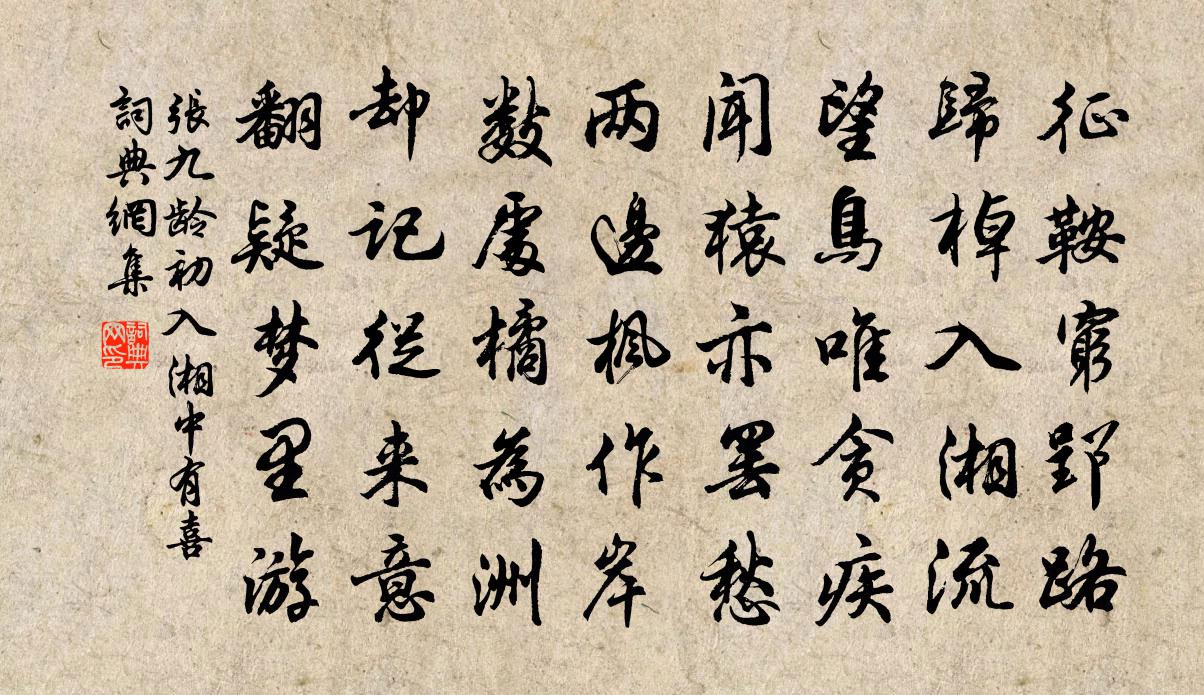 征鞍窮郢路
歸棹入湘流
望鳥唯貪疾
聞猿亦罷愁
两邊楓作岸
數處橘為洲
却記從来意
翻疑梦里游
張九齡初入湘中有喜
詞典網集
詞典网印